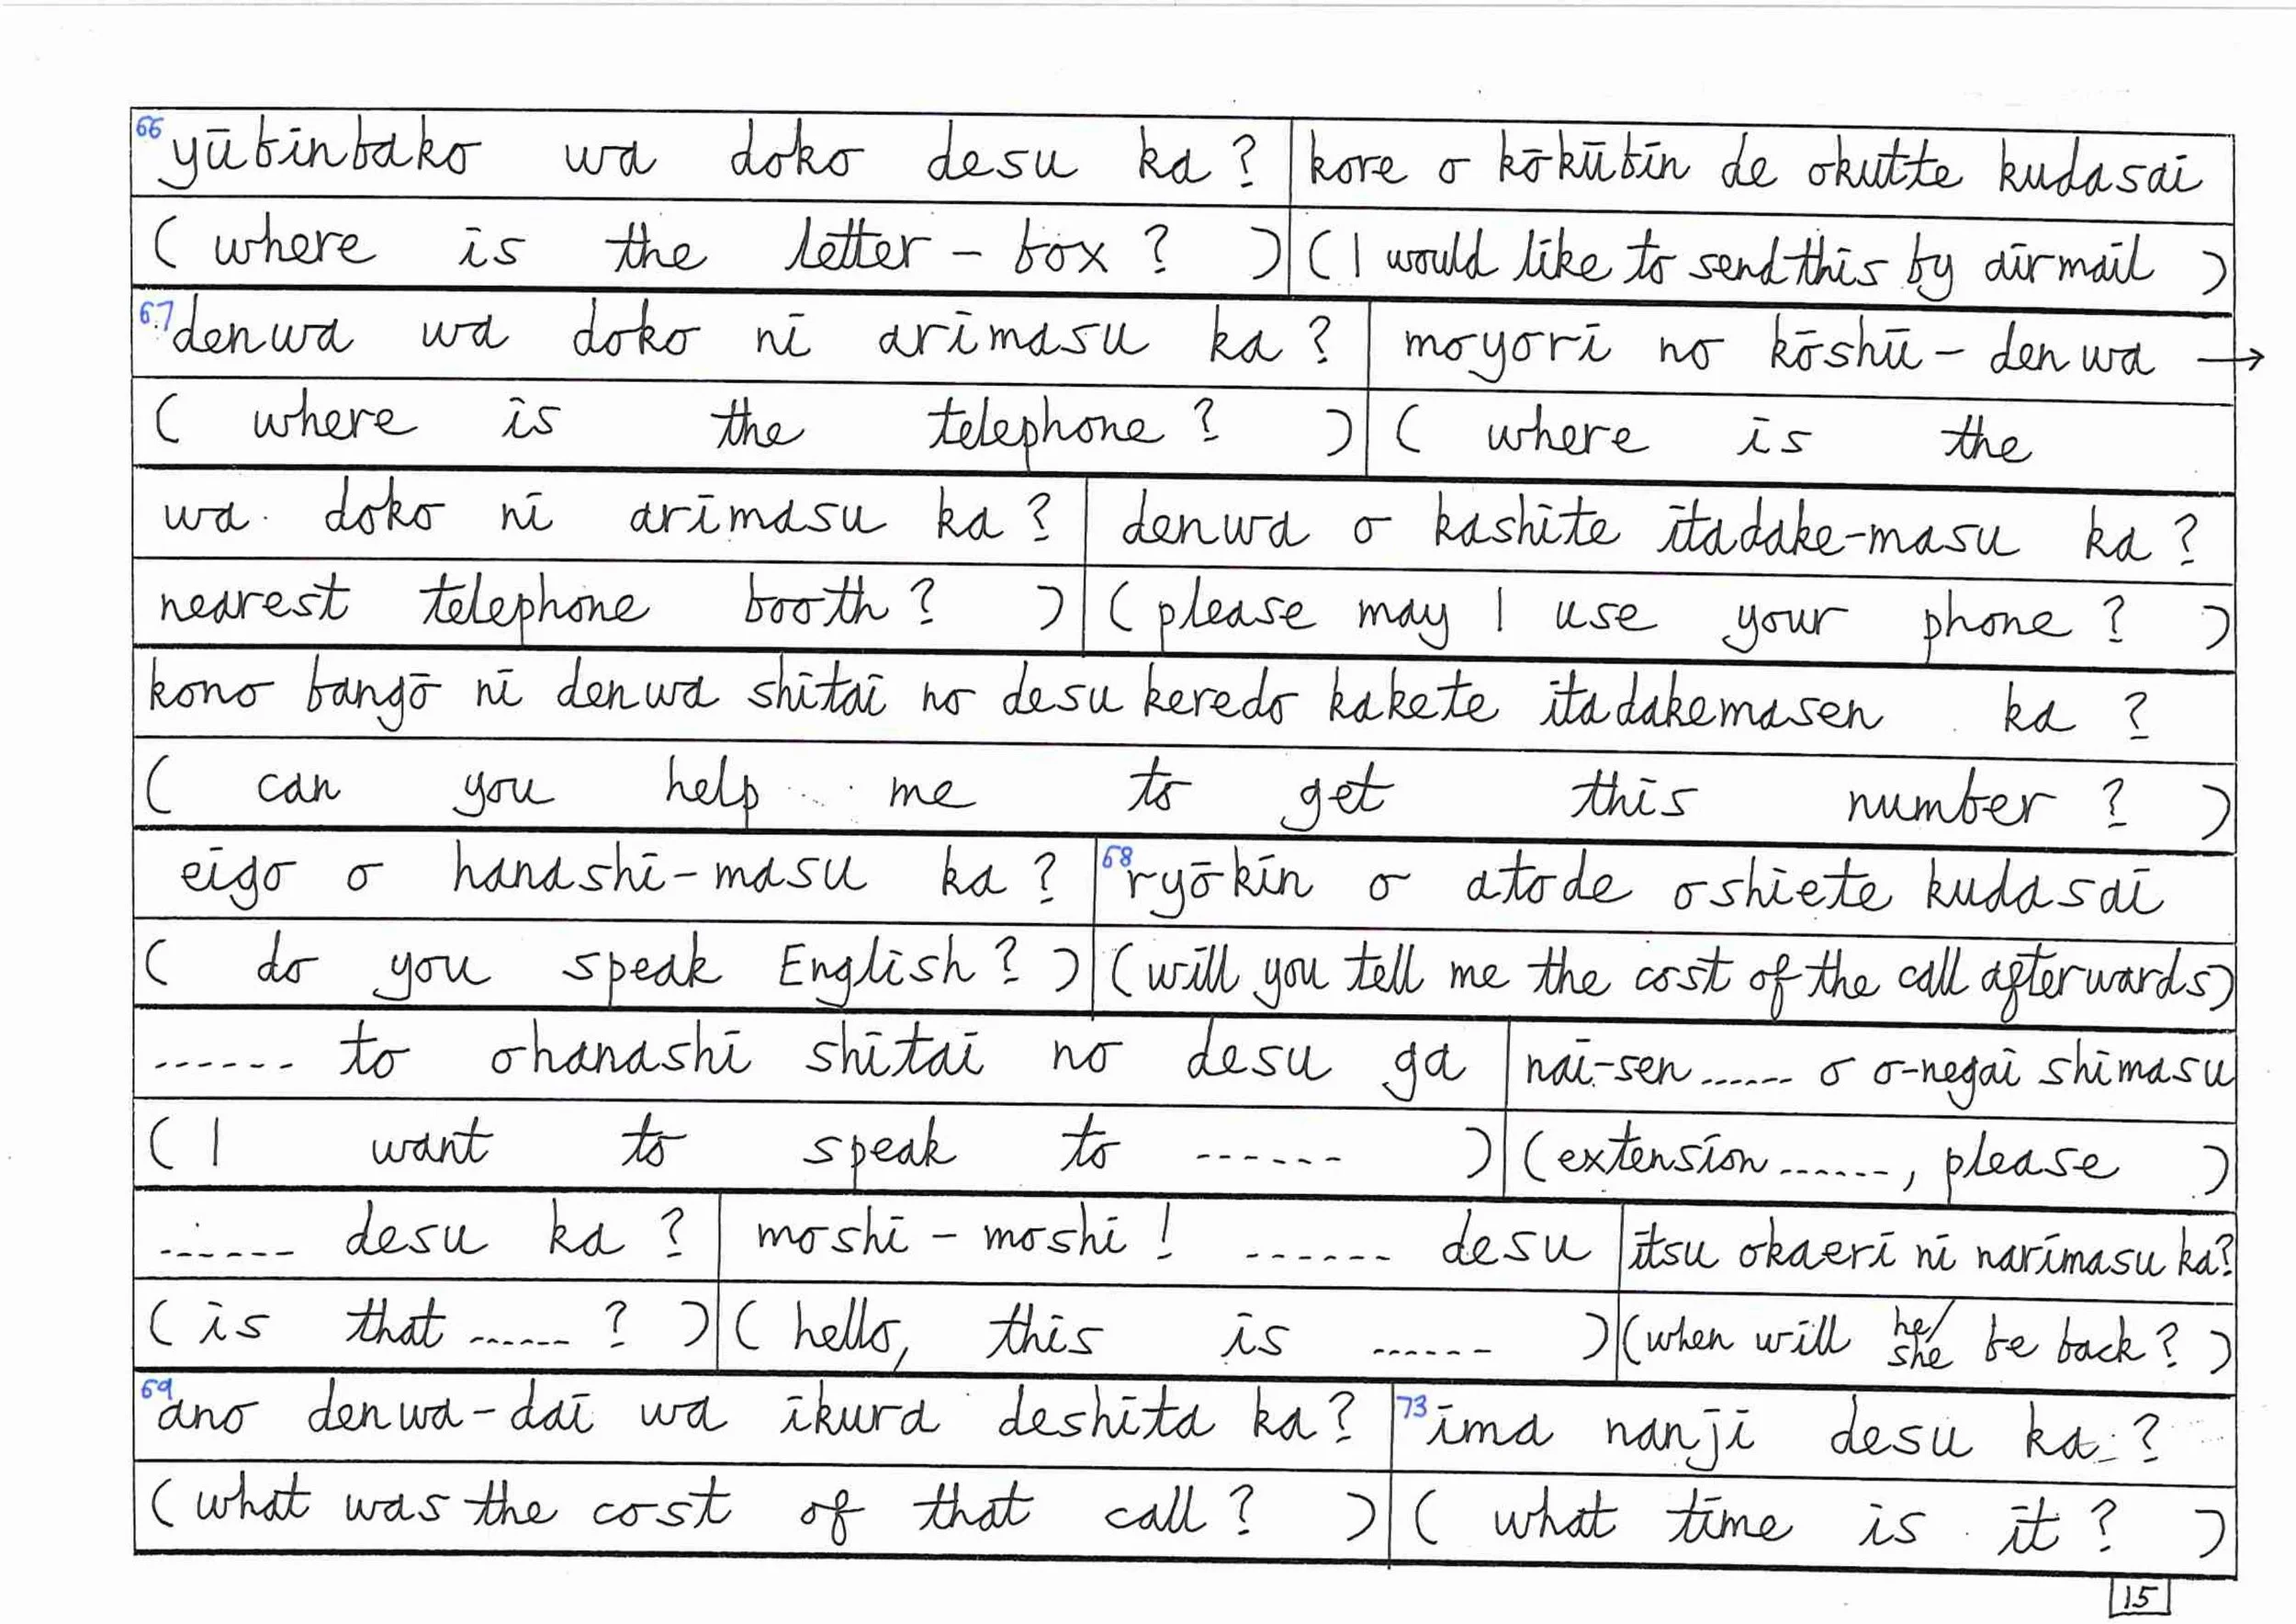 66 yūbinbako wa doko desu ka? kore o kōkūbin de okutte kudasai
(where is the letter-box?) (I would like to send this by airmail)
67 denwa wa doko ni arimasu ka? moyori no kōshū-denwa →
(where is the telephone?) (where is the
wa doko ni arimasu ka? denwa o kashite itadake-masu ka?
nearest telephone booth?) (please may I use your phone?)
kono bangō ni denwa shitai no desu keredo kakete itadakemasen ka?
(can you help me to get this number?)
eigo o hanashi-masu ka? 68 ryōkin o atode oshiete kudasai
(do you speak English?) (will you tell me the cost of the call afterwards)
------ to ohanashi shitai no desu ga nai-sen ------ o o-negai shimasu
(I want to speak to ------) (extension ------, please)
------ desu ka? moshi-moshi! ------ desu itsu okaeri ni narimasu ka?
(is that ------?) (hello, this is ------) (when will he/she be back?)
69 ano denwa-dai wa ikura deshita ka? 73 ima nanji desu ka?
(what was the cost of that call?) (what time is it?)
15